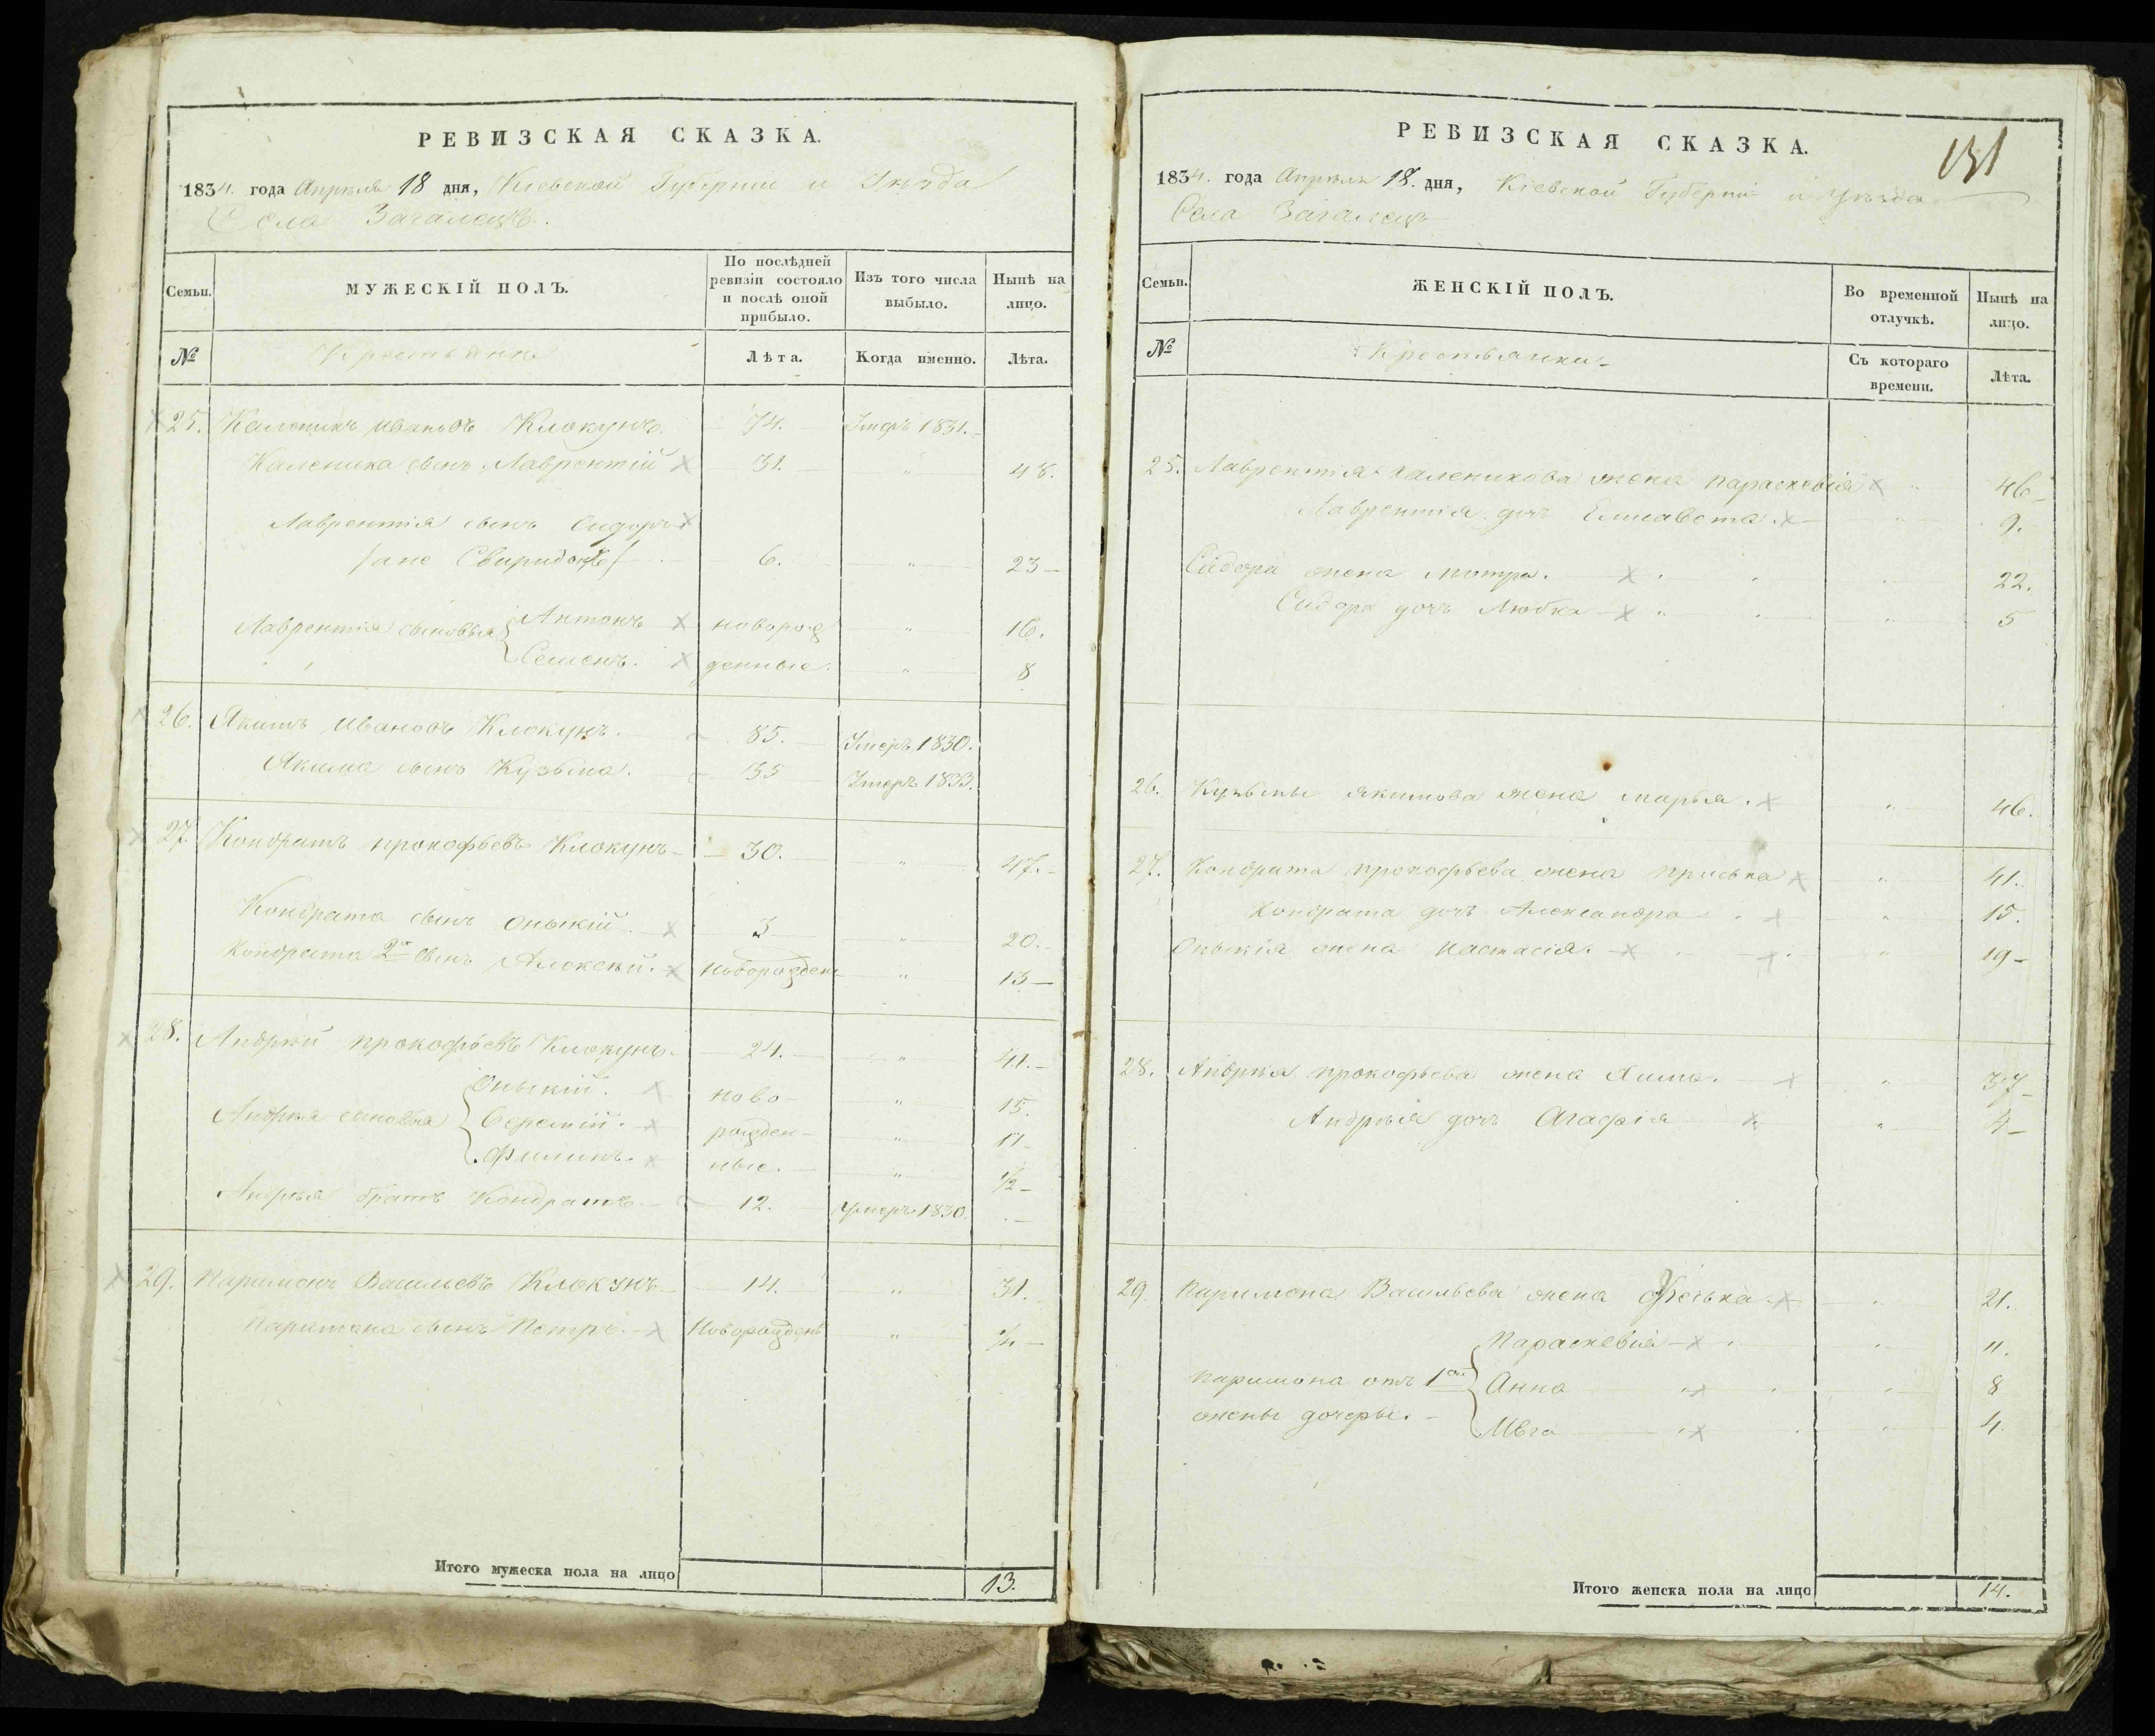 РЕВИЗСКАЯ СКАЗКА.
1834. года Апреля 18 дня, Кіевской Губерніи и Уезда
Села Загалецъ.
Семьи.
МУЖЕСКІЙ ПОЛЪ.
По послѣдней ревизіи состояло и послѣ оной прибыло.
Изъ того числа выбыло.
Нынѣ на лицо.
№
Крестьяне
Лѣта.
Когда именно.
Лѣта.
25. Каленикъ Ивановъ Клокунъ. 74. Умеръ 1831.
Каленика сынъ Лаврентій 31. " 48.
Лаврентія сынъ Сидоръ
/ане Свиридонъ/ 6. " 23
Лаврентія сыновья Антонъ новорож " 16.
Семенъ. денные. " 8
26. Якимъ Ивановъ Клокунъ. 85. Умеръ 1830.
Якима сынъ Кузьма. 35 Умеръ 1833.
27. Кондратъ прокофьевъ Клокунъ 30. " 47.
Кондрата сынъ Оныкій 3 " 20.
Кондрата 2й сынъ Алексѣй. новорожден " 13
28. Андрѣй прокофьевъ Клокунъ. 24. " 41.
Оныкій. ново " 15.
Андрѣя сыновья Еремій. рожден " 11
Филипъ. ные. " 1/2
Андрѣя братъ Кондратъ 12. умеръ 1830.
29. Паримонъ Васильевъ Клокунъ 14. " 31.
Паримона сынъ Петръ. Новорожденъ "
Итого мужеска пола на лицо 13.
РЕВИЗСКАЯ СКАЗКА.
131
1834. года Апрѣля 18. дня, Кіевской Губерніи и уѣзда
Села Загалецъ
Семьи.
ЖЕНСКІЙ ПОЛЪ.
Во временной отлучкѣ.
Нынѣ на лицо.
№
Крестьянки
Съ котораго времени.
Лѣта.
25. Лаврентія каленикова жена параскевія " 46
Лаврентія дочь Елисавета. " 9.
Сидора жена Мотра. " 22.
Сидора дочь Любка " 5
26. Кузьмы якимова жена марья. " 46.
27. Кондрата прокофьева жена приська " 41.
Кондрата дочь Александра " 15.
Оныкія жена настасія. " 19
28. Андрѣя прокофьева жена Анна. " 37
Андрѣя дочь Агафія " 4
29. Паримона Васильева жена Феська " 21.
Параскевія " 11.
паримона отъ 1ой Анна " 8
жены дочеры. Ивга " 4.
Итого женска пола на лицо 14.